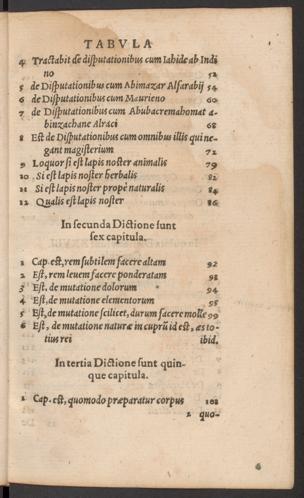 TABVLA
4 Tractabit de disputationibus cum Iahide ab Indi
no 52
5 de Disputationibus cum Abimazar Alfarabij 54
6 de Disputationibus cum Maurieno 60
7 de Disputationibus cum Abubacremahomat a-
binzachane Alraci 68
8 Est de Disputationibus cum omnibus illis qui ne-
gant magisterium 72
9 Loquor si est lapis noster animalis 79
10 Si est lapis noster herbalis 82
11 Si est lapis noster propè naturalis 84
12 Qualis est lapis noster 86
In secunda Dictione sunt
sex capitula.
1 Cap. est, rem subtilem facere altam 92
2 Est, rem leuem facere ponderatam 93
3 Est de mutatione dolorum 94
4 Est, de mutatione elementorum 95
5 Est, de mutatione scilicet, durum facere molle 99
6 Est, de mutatione naturæ in cuprũ id est, æs to-
tius rei ibid.
In tertia Dictione sunt quin-
que capitula.
1 Cap. est, quomodo præparatur corpus 102
2 quo-
6